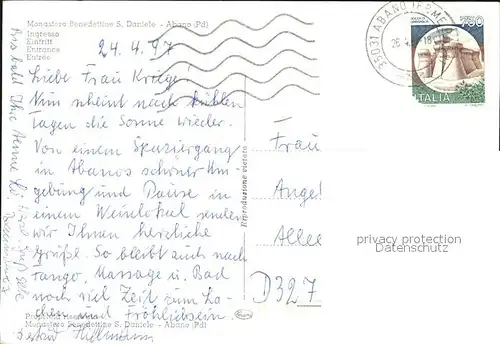 Monastero Benedettino S. Daniele - Abano (Pd)
Ingresso
Eintritt
Entrance
Entrée
24.4.97
Liebe Frau Kriege!
Nun scheint nach kühlen
Tagen die Sonne wieder.
Von einem Spaziergang
in Abanos schöner Um-
gebung und Pause in
einem Weinlokal senden
wir Ihnen herzliche
Grüße. So bleibt auch nach
Fango, Massage u. Bad
noch viel Zeit zum La-
chen und Fröhlichsein.
Monastero Benedettino S. Daniele - Abano (Pd)
Hellmann
Bis bald Ihre
Riproduzione vietata
35031 ABANO TERME
ITALIA
Frau
Angel
Allee
D 327
privacy protection
Datenschutz